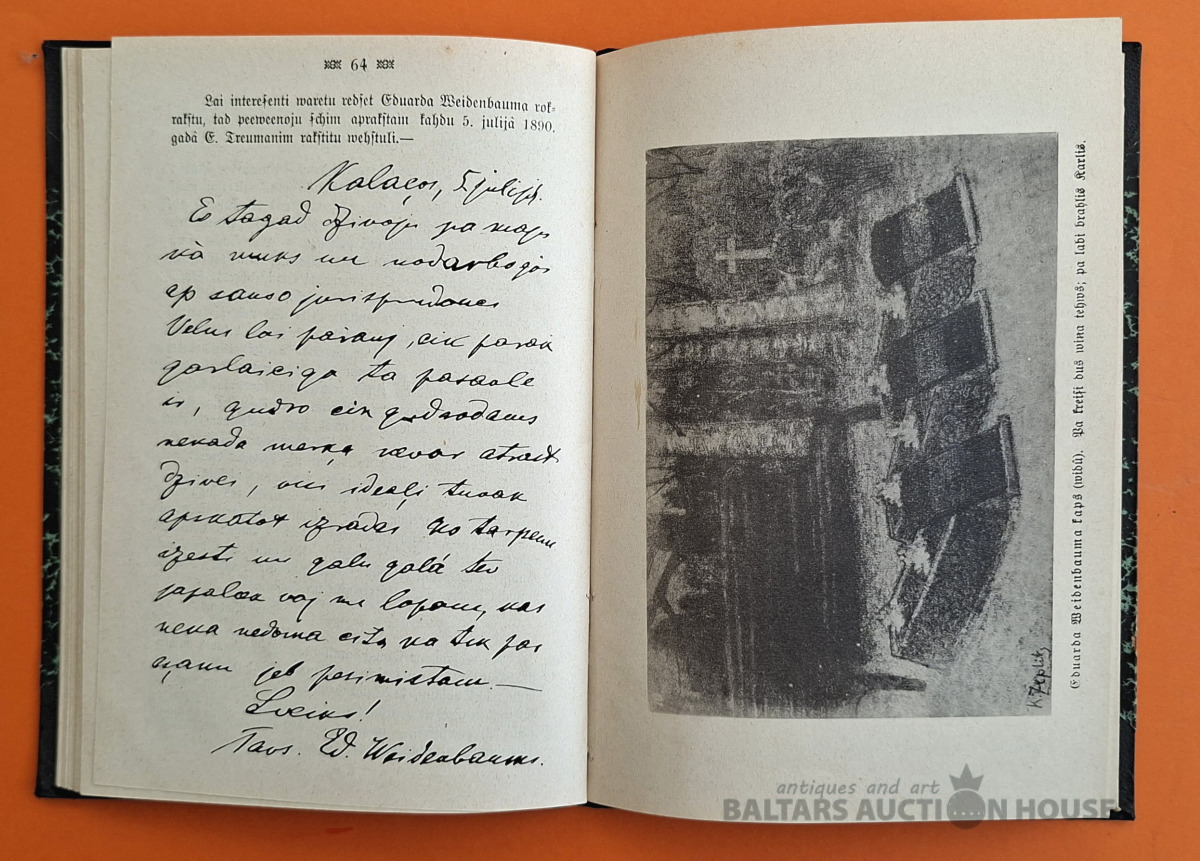 64
Lai intereſenti waretu redſet Eduarda Weidenbauma rok-
rakſtu, tad peeweenoju ſchim aprakſtam kahdu 5. julijâ 1890.
gadâ E. Treumanim rakſtitu wehſtuli.—
Kalačos, 5 julijā.
Es tagad dzivoju pa
kā muks un nodarbojos
ap sauso jurisprudenci
Velns lai parauj, cik parak
garlaiciga ta pasaule
ir, gudro cik gudrodams
nekada merķa nevar atrast
dzivei, visi ideaļi tuvak
apskatot izradas no
un galu galá tev
japaliek vaj nu lopam, kas
neka nedoma cita ka tik par
jeb pesimistam.—
Sveiks!
Tavs. Ed. Weidenbaums.
Eduarda Weidenbauma kaps (widû). Pa kreiſi dus wina tehws; pa labi brahlis Karlis.
K Zeplits
antiques and art
BALTARS AUCTION HOUSE